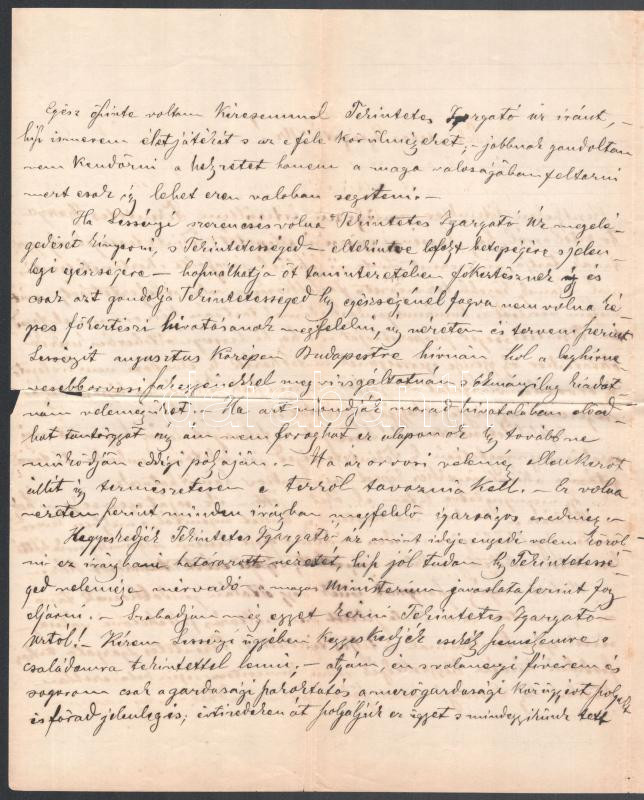 Egész őszinte voltam Kérésemmel Tekintetes Igazgató úr iránt, –
hisz ismerem életjátékát s az efféle Körülményeket; – jobbnak gondoltam
nem Kendőzni a helyzetet hanem a maga valóságában feltárni
mert csak így lehet ezen valóban segíteni. –
Ha szerencsés volna Tekintetes Igazgató Úr megelé-
gedését kinyerni, s Tekintetességed – eltekintve betegségére s jelen-
legi egészségére – használhatja őt tanintézetében főkertésznek így és
csak azt gondolja Tekintetességed hogy egészségénél fogva nem volna ké-
pes főkertészi hivatásának megfelelni, úgy nézetem és tervem szerint
augusztus Közepén Budapestre hívnám hol a leghirne-
vesebb orvosi megvizsgáltatnám s okmányilag kiadat-
nám véleményüket. – Ha azt mondják marad hivatalában előad-
hat tantárgyát így ám nem foroghat ez alapon ok hogy tovább ne
működjön eddigi pályáján. – Ha az orvosi vélemény ellenkezőt
állít így természetesen e térről távoznia Kell. – Ez volna
nézetem szerint minden irányban megfelelő igazságos eredmény. –
Kegyeskedjék Tekintetes Igazgató úr amint ideje engedi velem Közöl-
ni ez iránybani határozott nézetét, hisz jól tudom hogy Tekintetessé-
ged véleménye mérvadó a magas Ministerium javaslata szerint fog
eljárni. – Szabadjon még egyet kérni Tekintetes Igazgató
Úrtól! – Kérem ügyében Kegyeskedjék csekély személyemre s
családomra tekintettel lenni; – atyám, én s valamennyi fivérem és
sogorom csak a gazdasági pályán a mezőgazdasági Közügyért
és fárad jelenleg is; évtizedeken át szolgáljuk ez ügyet s mindegyikünk tett